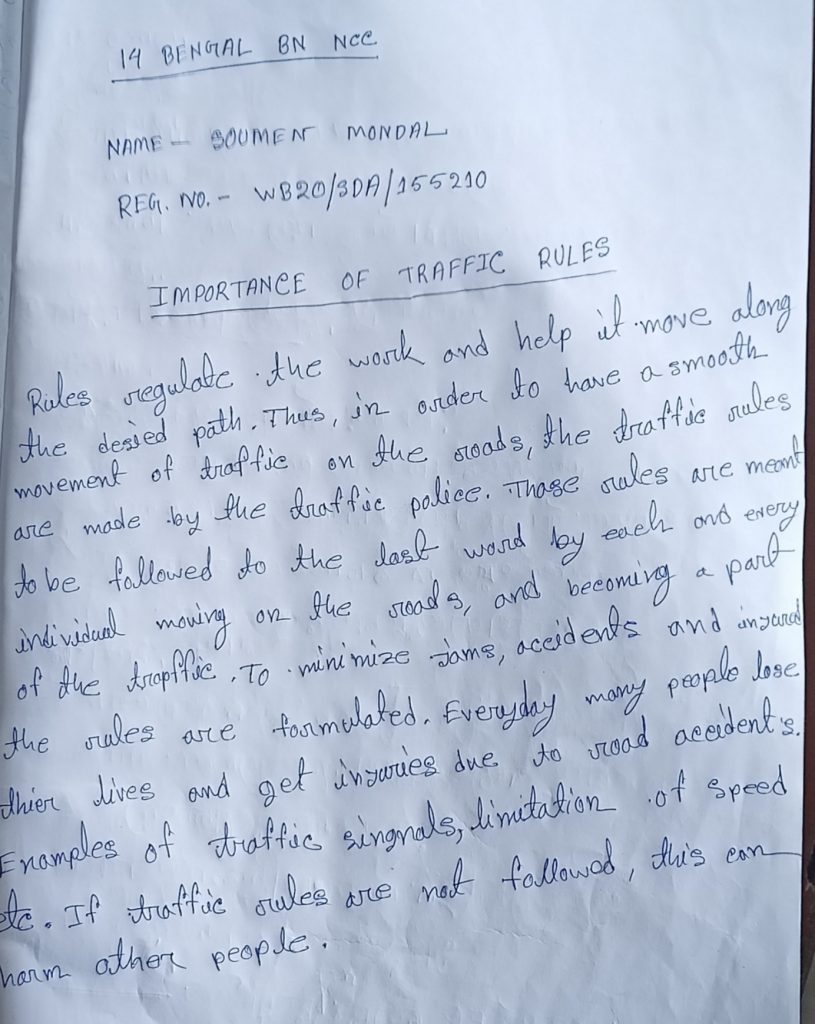 14 BENGAL BN NCC
NAME - SOUMEN MONDAL
REG. NO. - WB20/SDA/155210
IMPORTANCE OF TRAFFIC RULES
Rules regulate the work and help it move along
the desied path. Thus, in order to have a smooth
movement of traffic on the roads, the traffic rules
are made by the traffic police. Those rules are meant
to be followed to the last word by each and every
individual moving on the roads, and becoming a part
of the trapffic. To minimize jams, accidents and injured
the rules are formulated. Everyday many people lose
thier lives and get injuries due to road accidents.
Enamples of traffic singnals, limitation of speed
etc. If traffic rules are not followed, this can
harm other people.